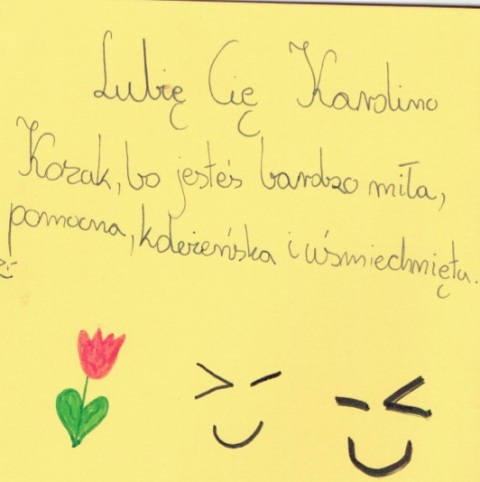 Lubię Cię Karolino
Kozak, bo jesteś bardzo miła,
pomocna, koleżeńska i uśmiechnięta.